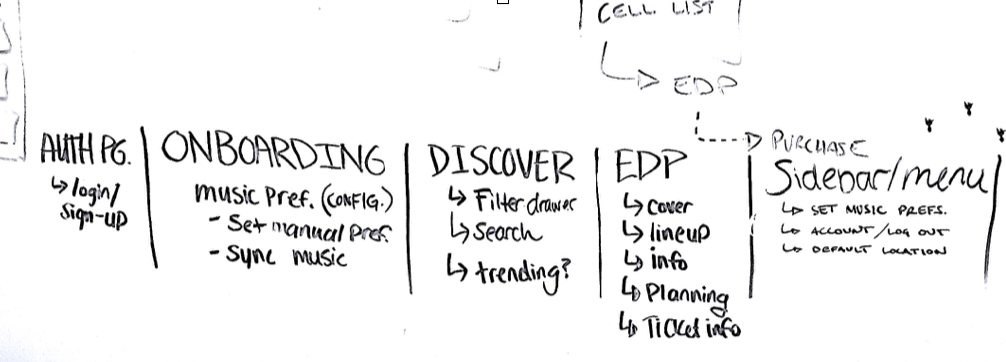 CELL LIST
EDP
PURCHASE
AUTH PG.
login/
Sign-up
ONBOARDING
music Pref. (CONFIG.)
- Set manual Pref.
- Sync music
DISCOVER
Filter drawer
Search
trending?
EDP
cover
lineup
info
Planning
Ticket info
Sidebar/menu
SET MUSIC PREFS.
ACCOUNT/LOG OUT
DEFAULT LOCATION